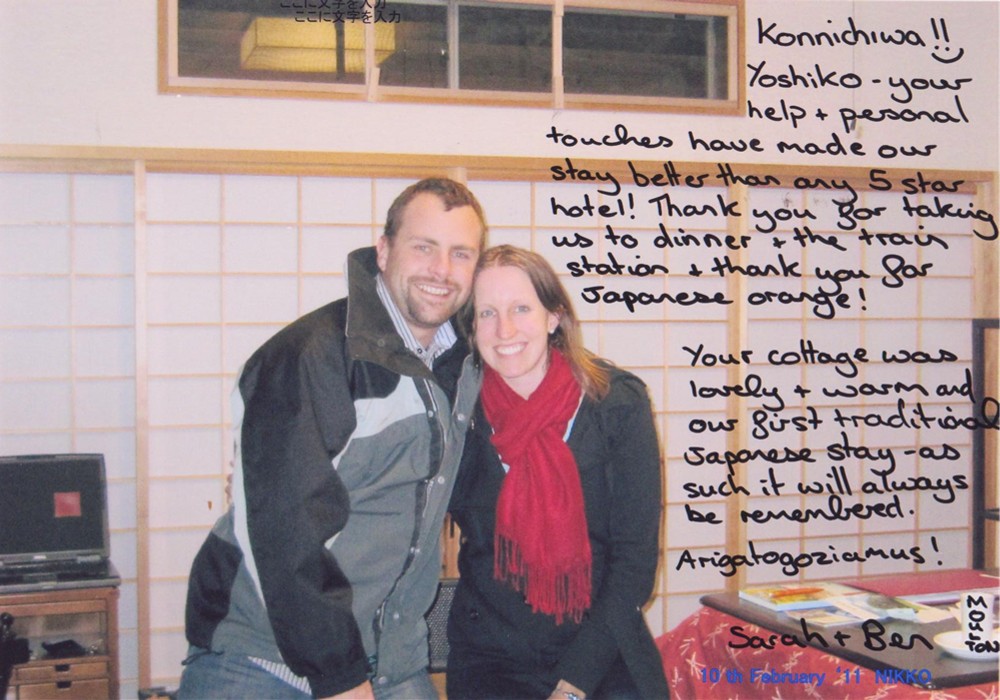 ここに文字を入力
ここに文字を入力
Konnichiwa!!
Yoshiko - your
help + personal
touches have made our
stay better than any 5 star
hotel! Thank you for taking
us to dinner + the train
station + thank you for
Japanese orange!
Your cottage was
lovely + warm and
our first traditional
Japanese stay - as
such it will always
be remembered.
Arigatogoziamus!
Sarah + Ben
MORR
TON
10 th February '11 NIKKO